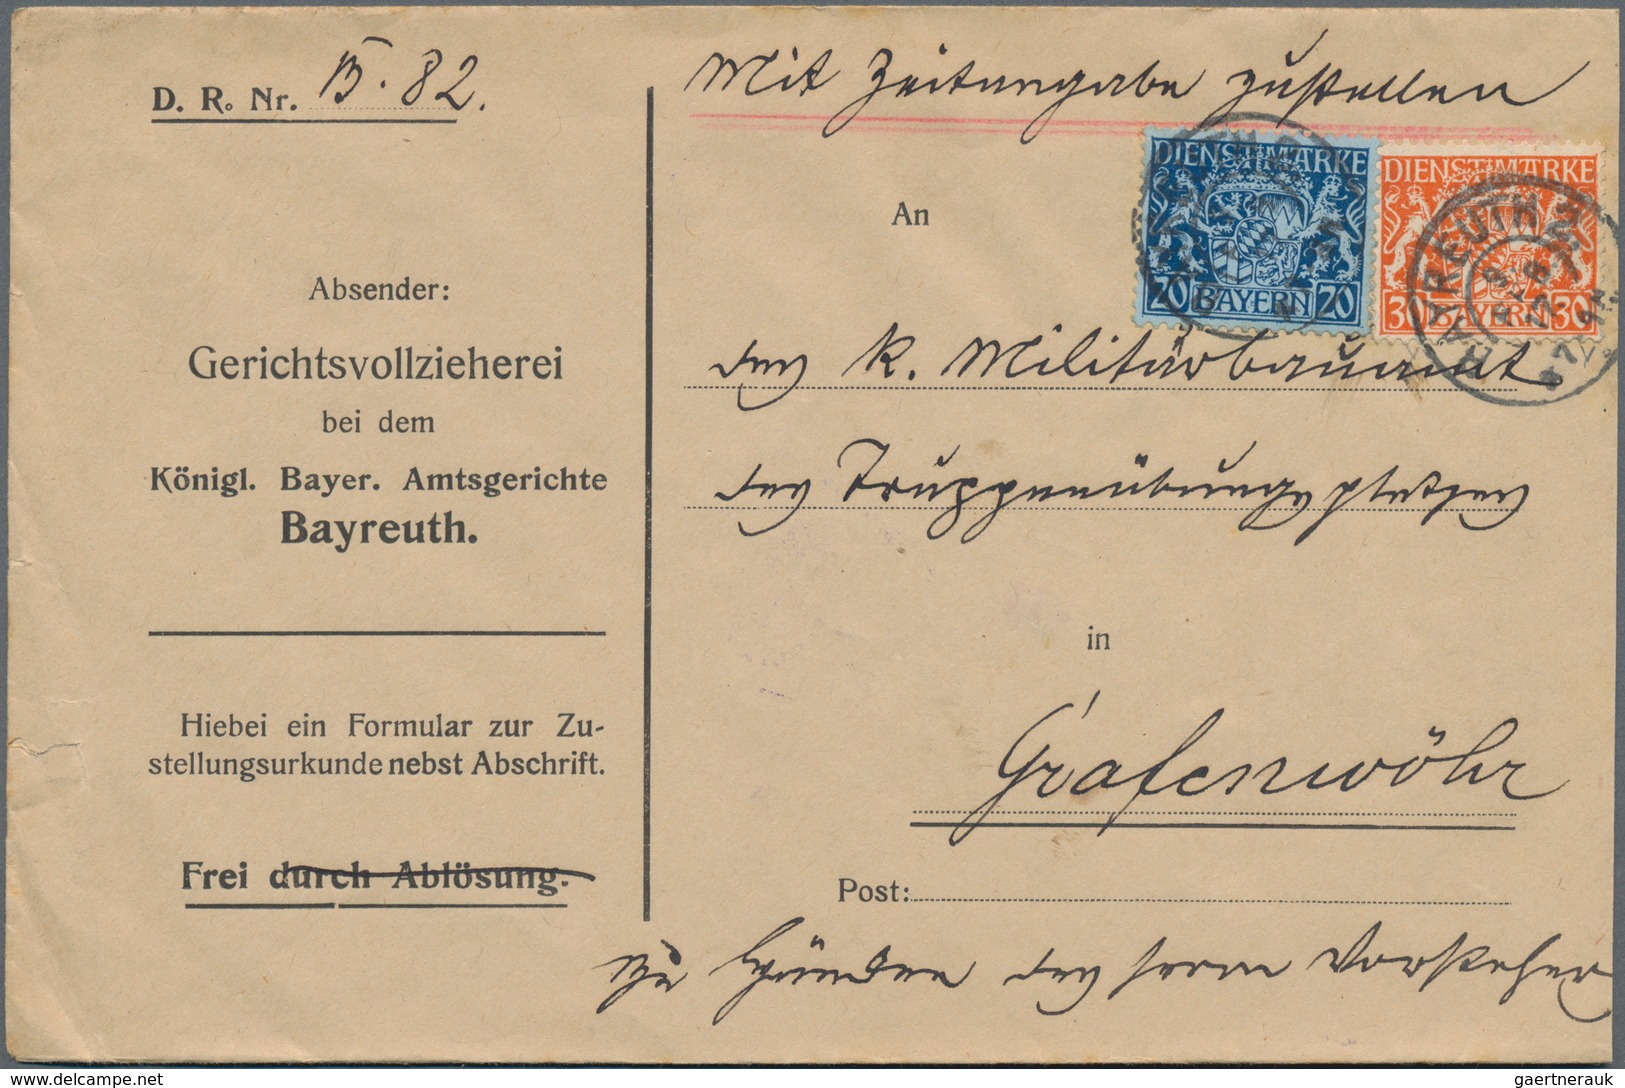 D. R. Nr. B. 82.
Mit Zeitangabe zustellen
DIENSTMARKE
20 BAYERN 20
DIENSTMARKE
30 BAYERN 30
BAYREUTH 2
An
Absender:
Gerichtsvollzieherei
bei dem
Königl. Bayer. Amtsgerichte
Bayreuth.
das K. Militärbauamt
des Truppenübungsplatzes
in
Grafenwöhr
Hiebei ein Formular zur Zu-
stellungsurkunde nebst Abschrift.
Frei durch Ablösung.
Post:
zu Händen des Herrn Vorstehers
www.delcampe.net
gaertnerauk